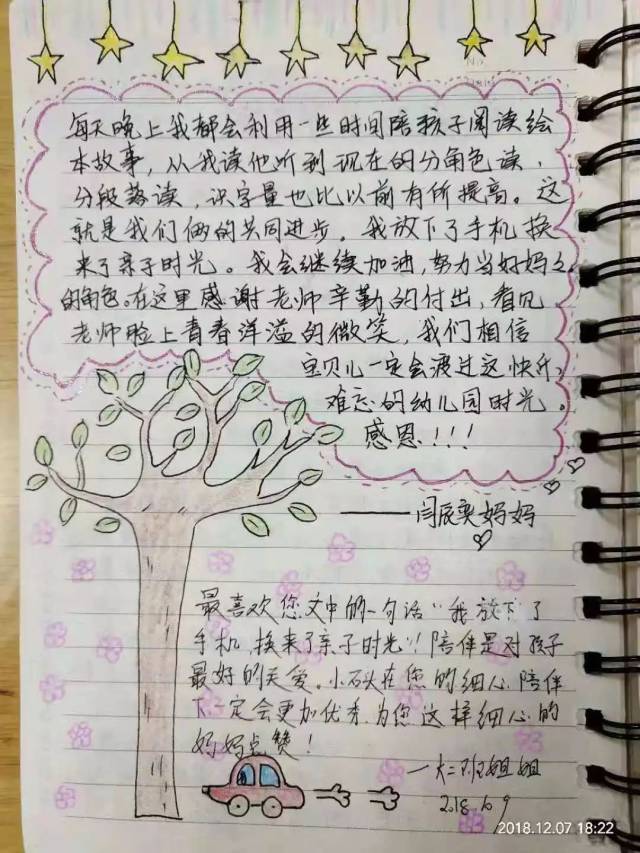 每天晚上我都会利用一些时间陪孩子阅读绘
本故事，从我读他听到现在的分角色读，
分段落读，识字量也比以前有所提高。这
就是我们俩的共同进步，我放下了手机换
来了亲子时光。我会继续加油，努力当好妈妈
的角色。在这里感谢老师辛勤的付出，看见
老师脸上青春洋溢的微笑，我们相信
宝贝儿一定会渡过这快乐，
难忘的幼儿园时光。
感恩！！！
——闫宸奕妈妈
最喜欢您文中的一句话“我放下了
手机，换来了亲子时光”！陪伴是对孩子
最好的关爱。小 在您的细心陪伴
下一定会更加优秀，为您这样细心的
妈妈点赞！
—大二班姐姐
2018.12.07 18:22